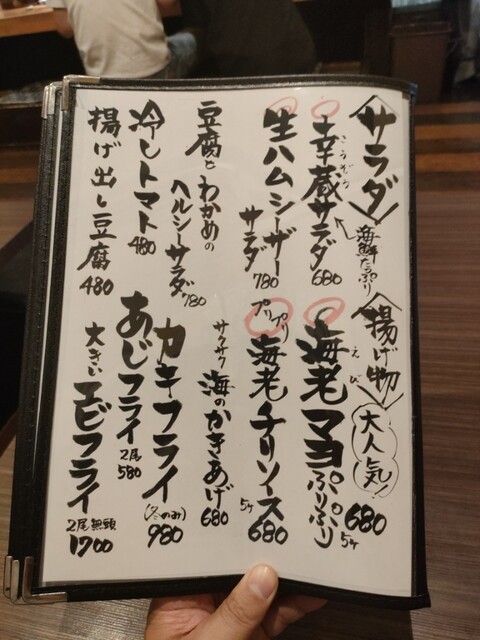 〈サラダ〉
幸蔵サラダ 680
こうぞう
海鮮たっぷり
生ハムシーザーサラダ 780
豆腐とわかめの
ヘルシーサラダ 780
冷しトマト 480
揚げ出し豆腐 480
〈揚げ物〉
大人気!!
海老マヨ ぷりぷり 5ケ 680
えび
プリプリ
海老チリソース 5ケ 680
サクサク
海のかきあげ 680
カキフライ (冬のみ) 980
あじフライ 2尾 580
大きいエビフライ 2尾無頭 1700